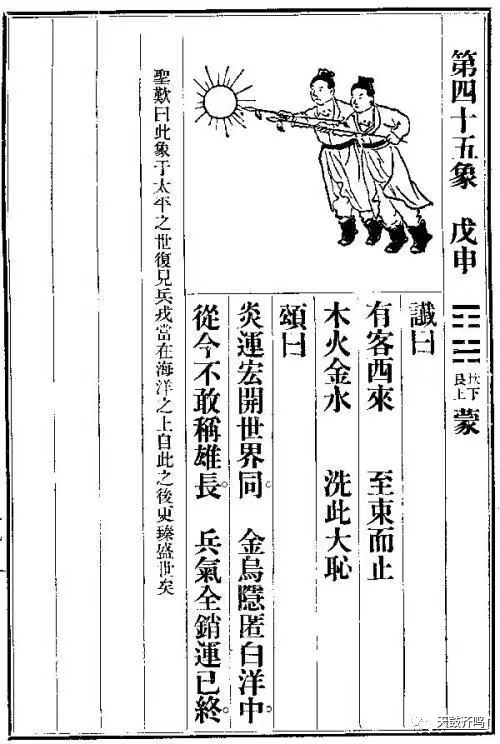 第四十五象 戊申 ䷃ 坎下艮上 蒙
讖曰
有客西來 至東而止
木火金水 洗此大恥
頌曰
炎運宏開世界同。 金烏隱匿白洋中。
從今不敢稱雄長。 兵氣全銷運已終。
聖歎曰此象于太平之世復見兵戎當在海洋之上自此之後更臻盛世矣
天鼓齐鸣